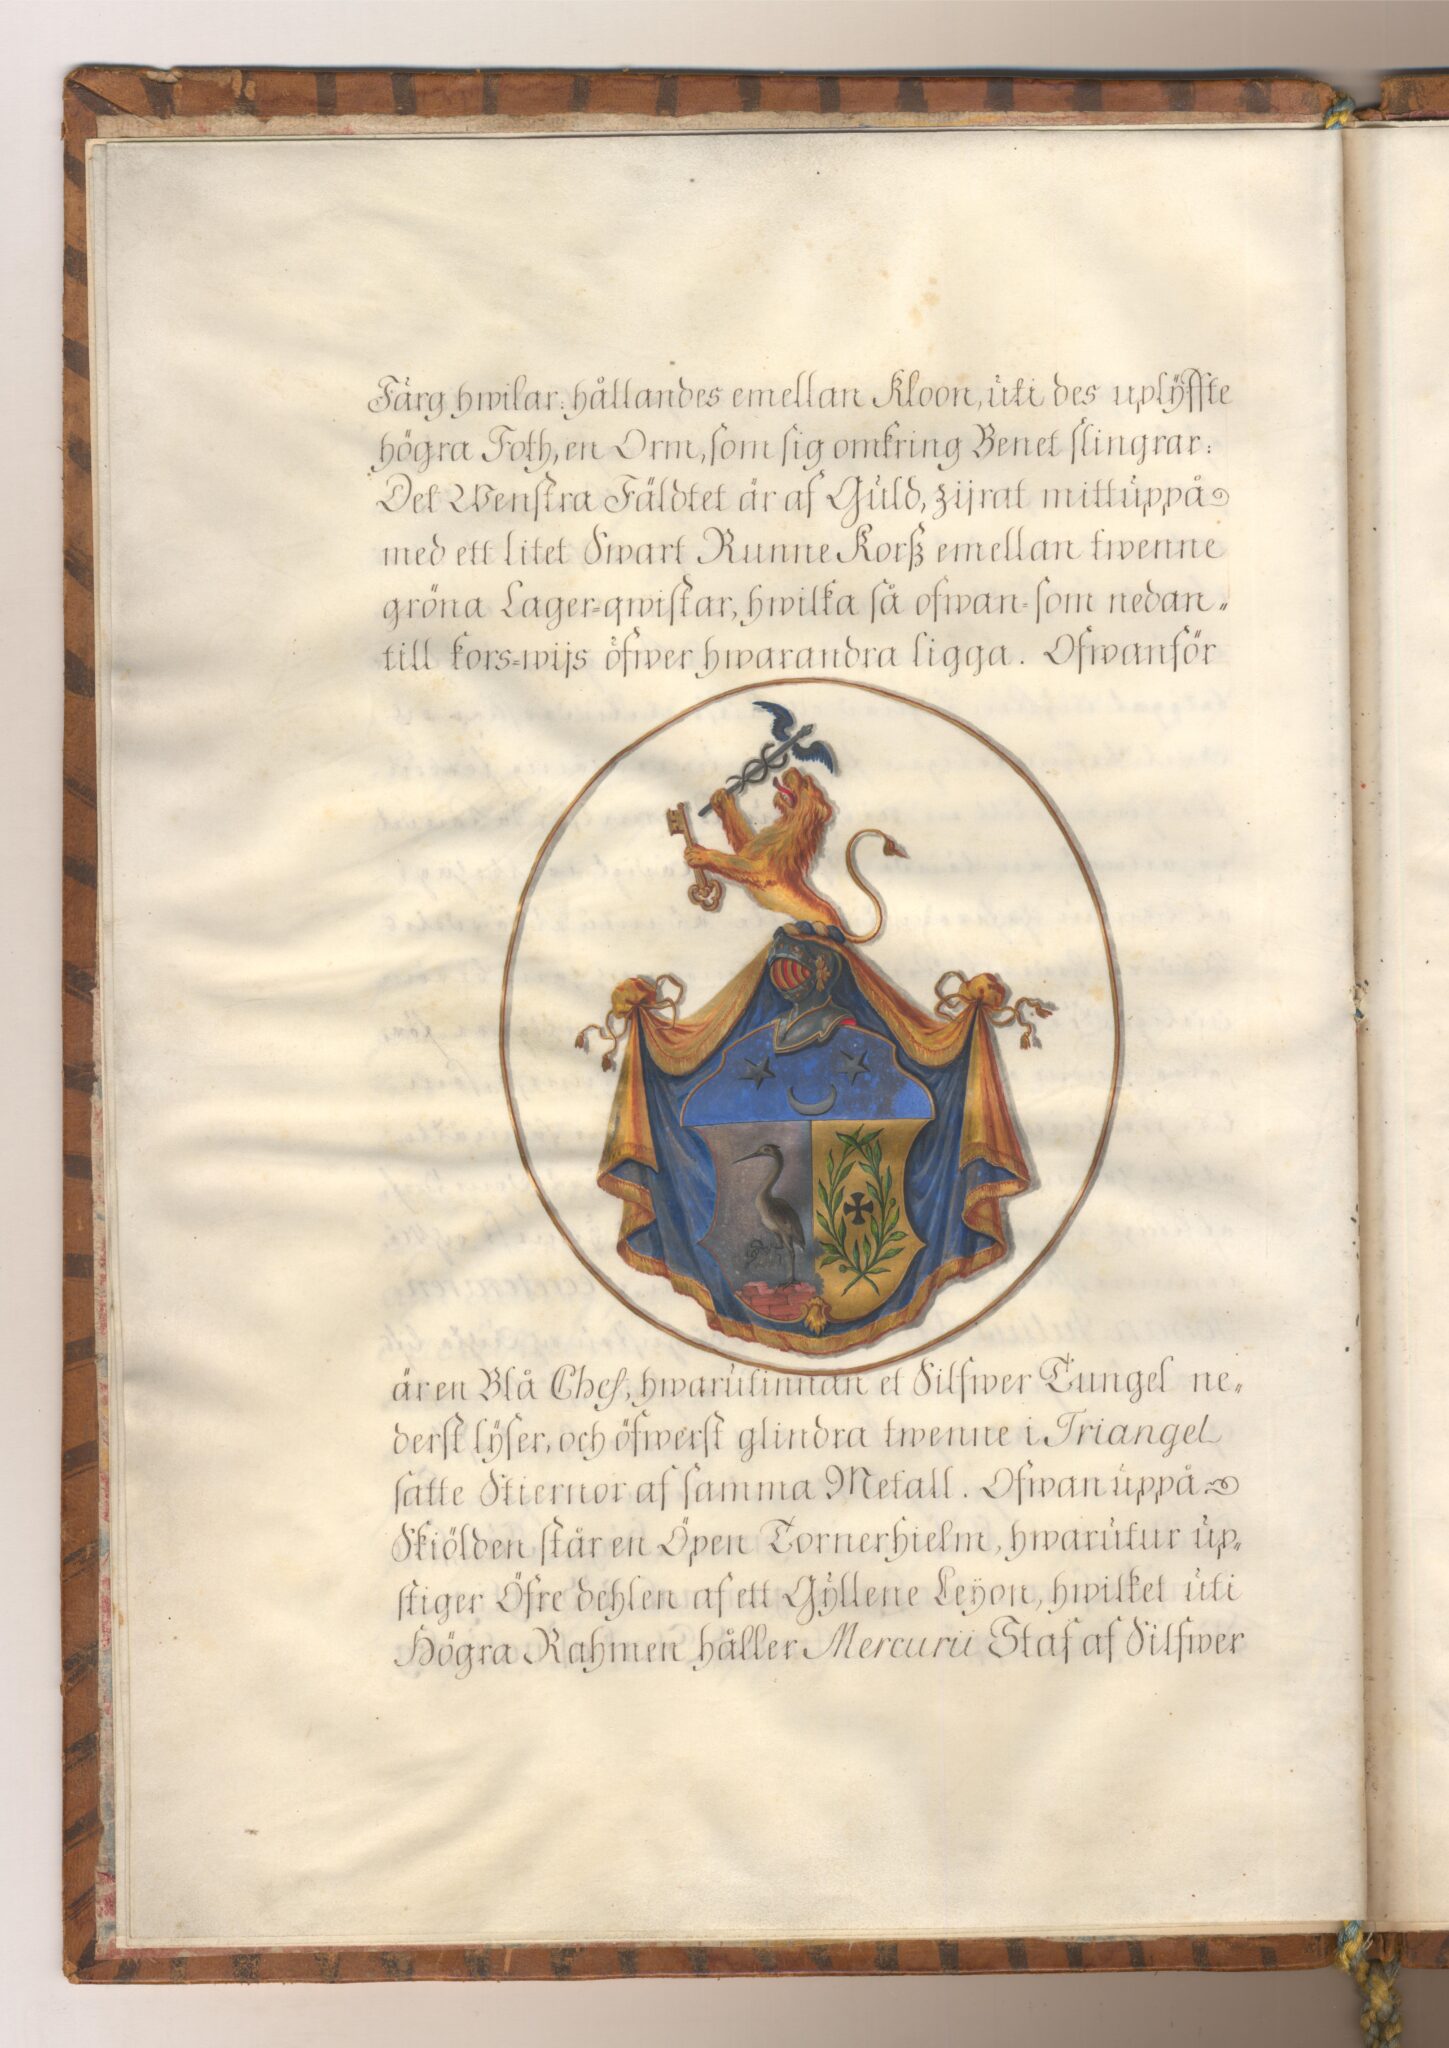 Färg hwilar: hållandes emellan Kloon, uti des uplÿffte
högra Foth, en Orm, som sig omkring Benet slingrar:
Det Wenstra Fäldtet är af Guld, zijrat mittuppå
med ett litet Swart Runne Korß emellan twenne
gröna Lager=qwistar, hwilka så ofwan=som nedan„
till kors=wijs öfwer hwarandra ligga. Ofwanför
är en Blå Chef, hwarutinnan et Silfwer Tungel ne„
derst lÿser, och öfwerst glindra twenne i Triangel
satte Stiernor af samma Metall. Ofwan uppå
Skiölden står en Öpen Tornerhielm, hwarutur up„
stiger Öfre dehlen af ett Gÿllene Leÿon, hwilket uti
Högra Rahmen håller Mercurii Staf af Silfwer